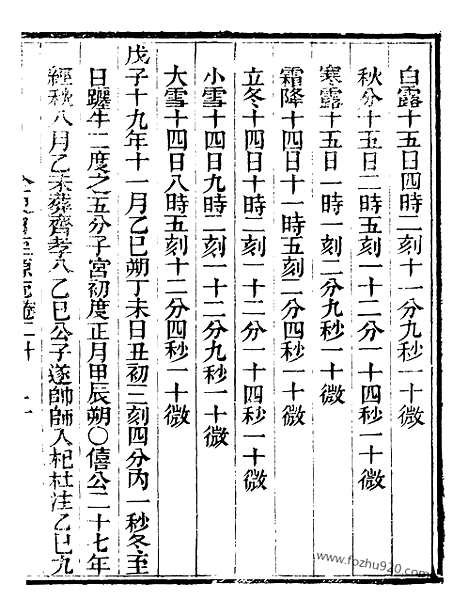 白露十五日四時二刻十一分九秒一十微
秋分十五日二時五刻一十二分一十四秒一十微
寒露十五日一時一刻二分九秒一十微
霜降十四日十一時五刻二分一十四秒一十微
立冬十四日十時二刻一十二分一十四秒一十微
小雪十四日九時二刻一十二分九秒一十微
大雪十四日八時五刻十二分四秒一十微
戊子十九年十一月乙巳朔丁未日丑初三刻四分內一秒冬至
日躔牛二度之五分子宮初度正月甲辰朔○僖公二十七年
經秋八月乙未葬齊孝公乙巳公子遂帥師入杞杜注乙巳九
www.fozhu920.com